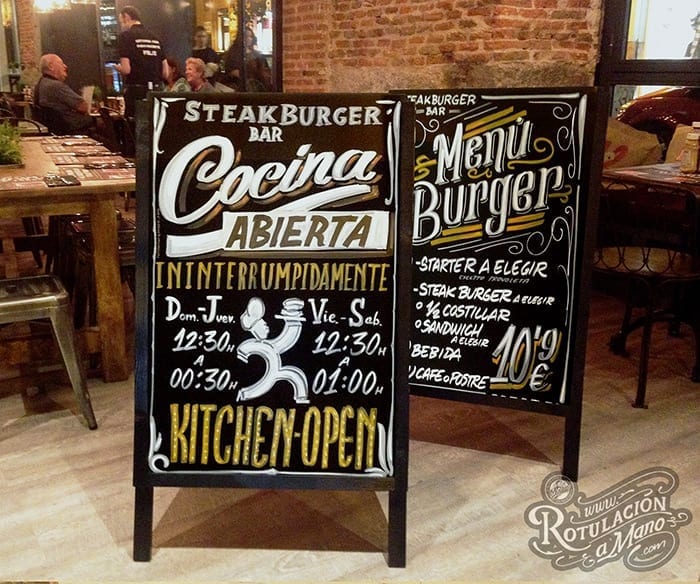 STEAKBURGER
BAR
Cocina
ABIERTA
ININTERRUMPIDAMENTE
Dom.-Juev.
12:30H
A
00:30H
Vie.-Sab.
12:30H
A
01:00H
KITCHEN-OPEN
TEAKBURGER
BAR
Menú
Burger
-STARTER A ELEGIR
-STEAK BURGER A ELEGIR
O ½ COSTILLAR
O SANDWICH
A ELEGIR
BEBIDA
U CAFE O POSTRE
10'9
€
www.
ROTULACIÓN
a MANO
.com